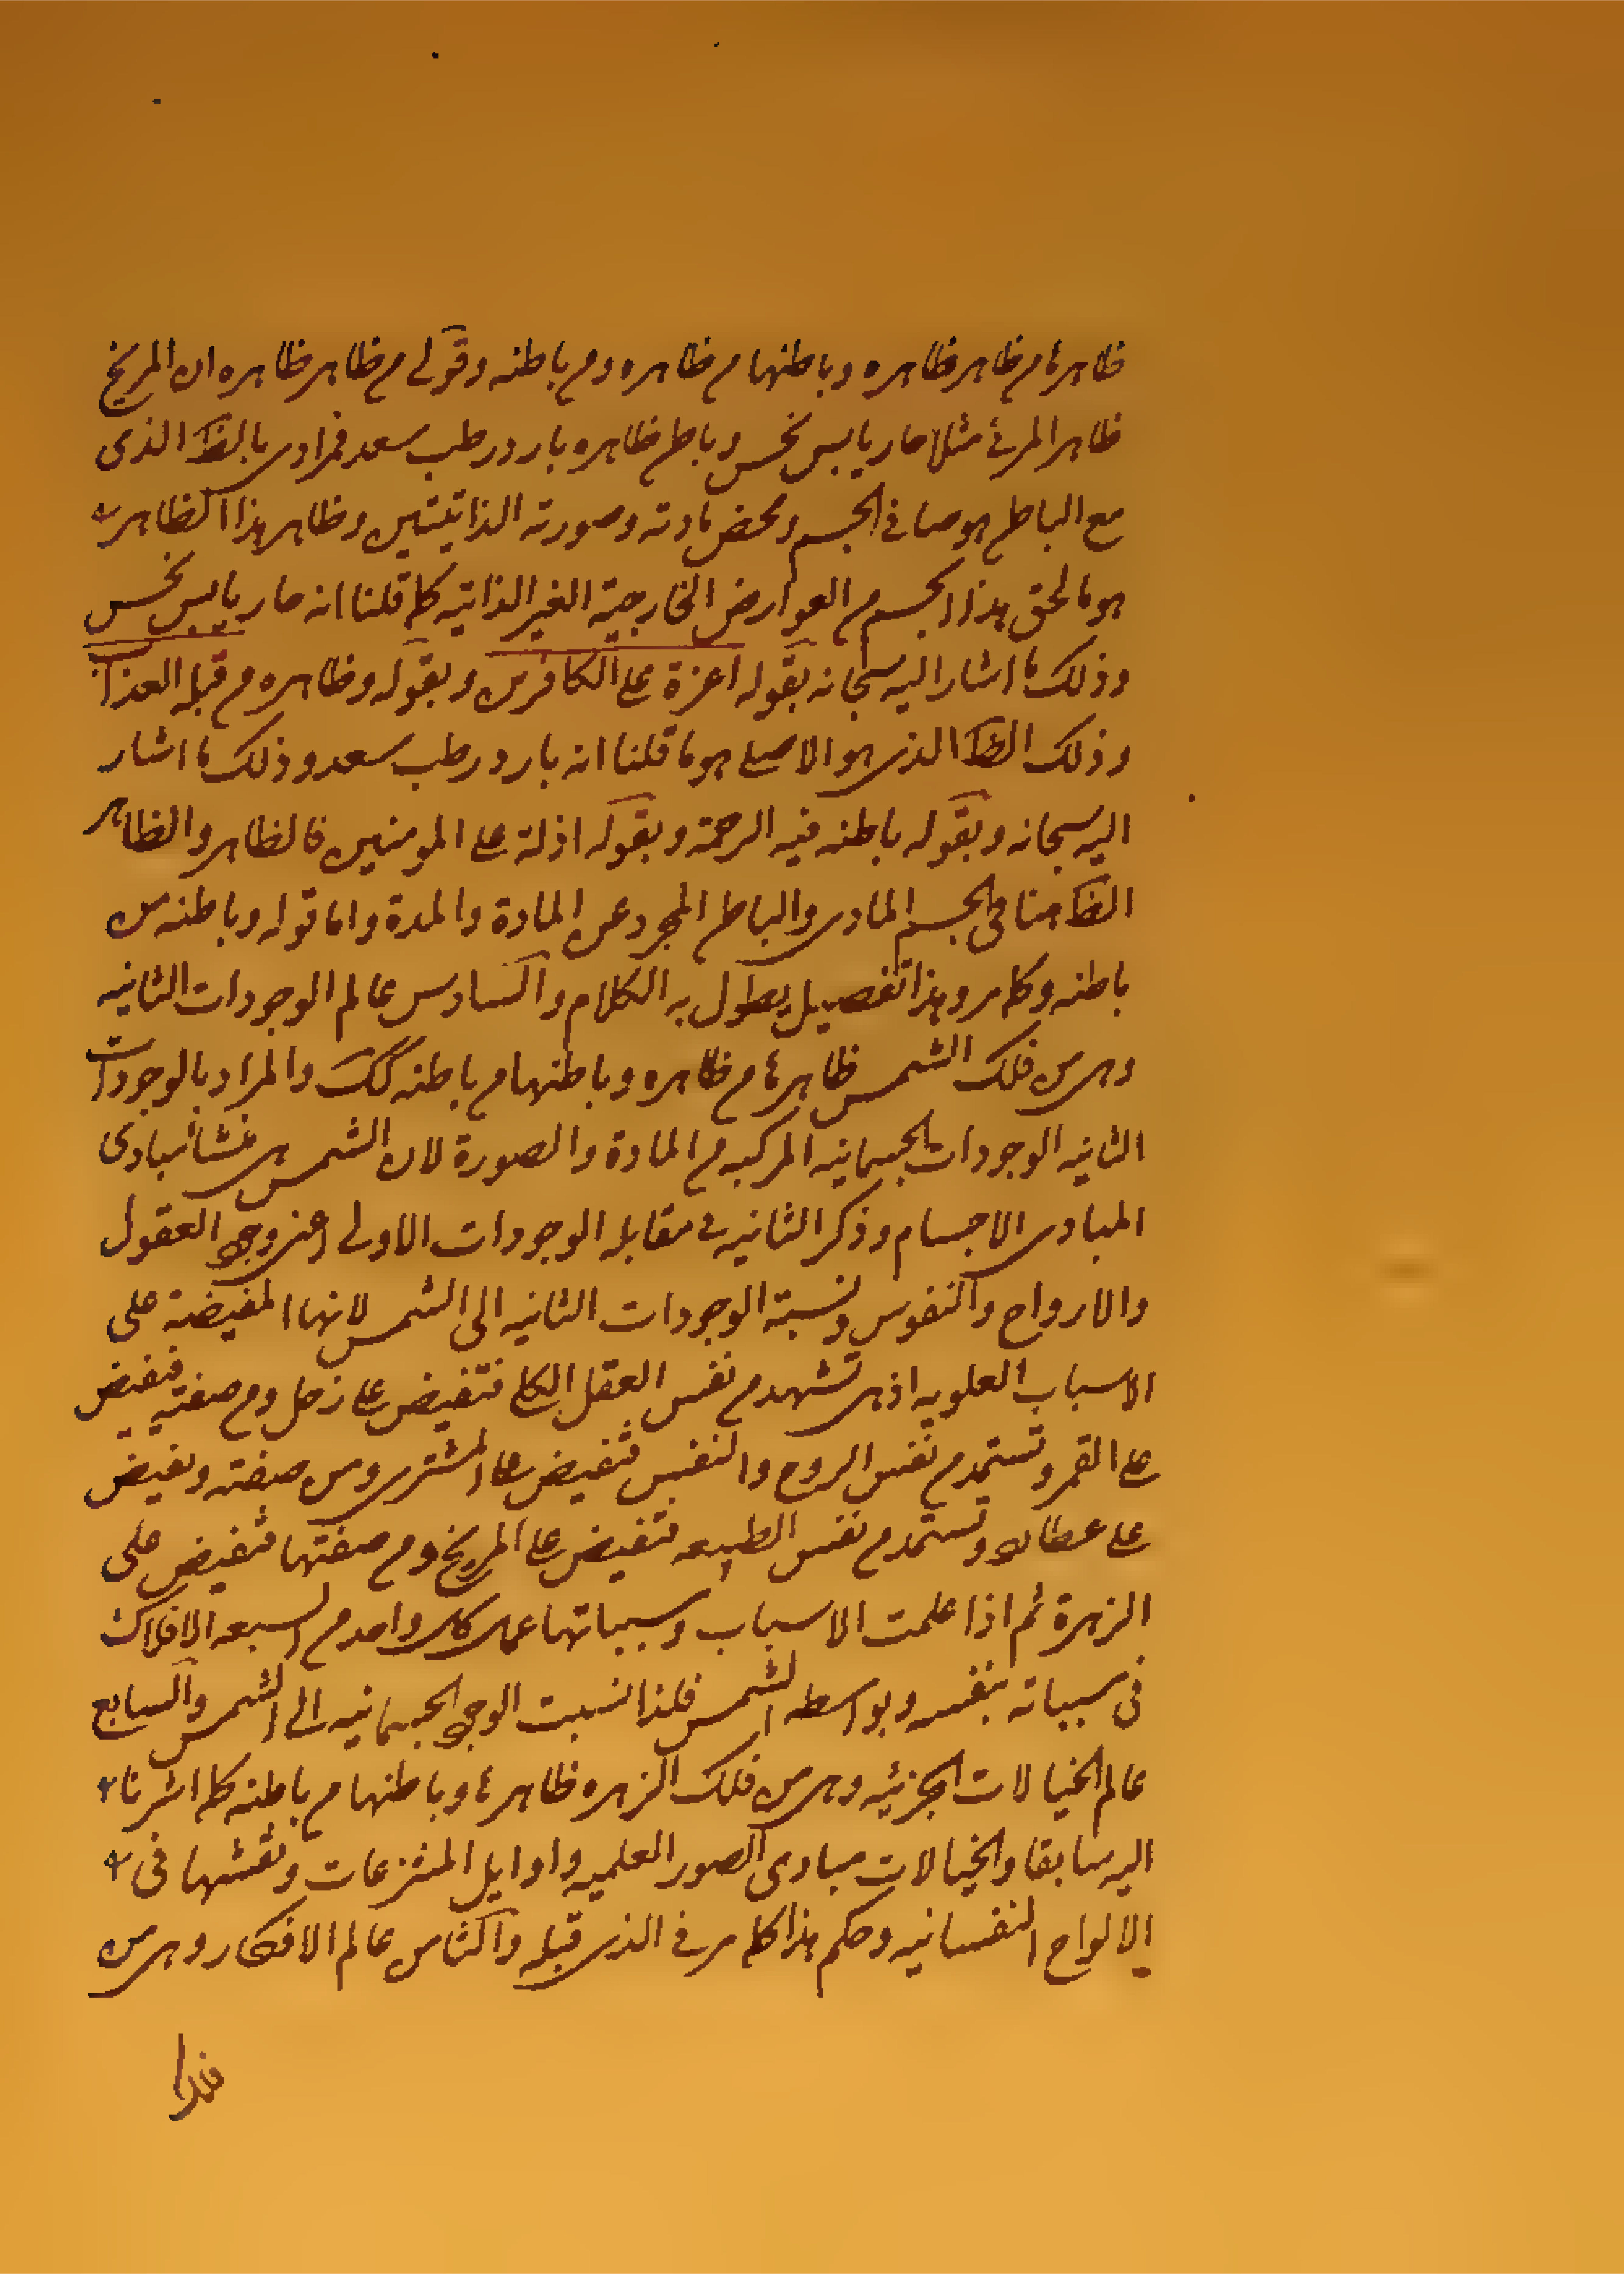 ظاهرها من ظاهر ظاهره وباطنها من ظاهره ومن باطنه وقولي من ظاهر ظاهره ان المريخ
ظاهر المرئ مثلا حار يابس نحس وباطن ظاهره بارد رطب سعد فمرادى بالظ الذى
مع الباطن هو صافى الجسم ومحض مادته وصورته الذاتيتين وظاهر هذا الظاهر
هو ما لحق هذا الجسم من العوارض الخارجية الغير الذاتيه كما قلنا انه حار يابس نحس
وذلك ما اشار اليه سبحانه بقوله اعزة على الكافرين وبقوله وظاهره من قبله العذاب
وذلك الظ الذى هو الاصلى هو ما قلنا انه بارد رطب سعد وذلك ما اشار
اليه سبحانه وبقوله باطنه فيه الرحمة وبقوله اذلة على المومنين فالظاهر والظاهر
الظ هنا فى الجسم المادى والباطن المجرد عن المادة والمدة واما قوله وباطنه من
باطنه وكلمر وهذا تفصيل يطول به الكلام والسادس عالم الوجودات الثانيه
وهى من فلك الشمس ظاهرها من ظاهره وباطنها من باطنه كك والمراد بالوجودات
الثانيه الوجودات الجسمانيه المركبه من المادة والصورة لان الشمس هى منشأ مبادى
المبادى الاجسام وذكر الثانيه فى مقابله الوجودات الاولى اعنى وجو العقول
والارواح والنفوس ونسبة الوجودات الثانيه الى الشمس لانها المفيضة على
الاسباب العلويه اذ هى تشهد من نفس العقل الكلى فتفيض على زحل ومن صفته فتفيض
على القمر وتستمد من نفس الروح والنفس فتفيض على المشترى ومن صفته وتفيض
على عطارد وتستمد من نفس الطبيعه فتفيض على المريخ ومن صفتها فتفيض على
الزهرة ثم اذا علمت الاسباب ومسبباتها عمل كل واحد من السبعه الافلاك
فى مسبباته بنفسه وبواسطه الشمس فلذا نسبت الوجو الجسمانيه الى الشمس والسابع
عالم الخيالات الجزئيه وهى من فلك الزهره ظاهرها وباطنها من باطنه كما اشرنا
اليه سابقا والخيالات مبادى الصور العلميه واوايل المنتزعات ونقشها فى
الالواح النفسانيه وحكم هذا كما مر فى الذى قبله والثامن عالم الافكار وهى من